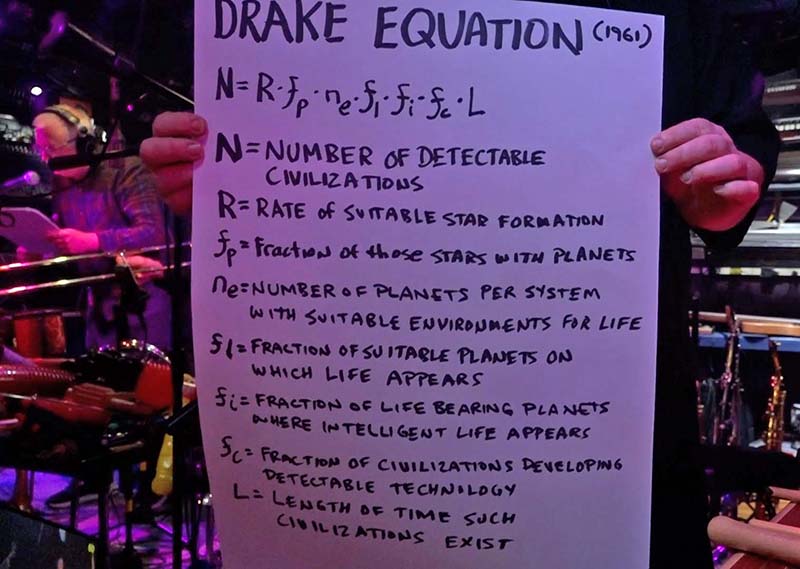 DRAKE EQUATION (1961)
N = R · fp · ne · fl · fi · fc · L
N = NUMBER OF DETECTABLE
CIVILIZATIONS
R = RATE OF SUITABLE STAR FORMATION
fp = FRACTION OF those STARS WITH PLANETS
ne = NUMBER OF PLANETS PER SYSTEM
WITH SUITABLE ENVIRONMENTS FOR LIFE
fl = FRACTION OF SUITABLE PLANETS ON
WHICH LIFE APPEARS
fi = FRACTION OF LIFE BEARING PLANETS
WHERE INTELLIGENT LIFE APPEARS
fc = FRACTION OF CIVILIZATIONS DEVELOPING
DETECTABLE TECHNOLOGY
L = LENGTH OF TIME SUCH
CIVILIZATIONS EXIST